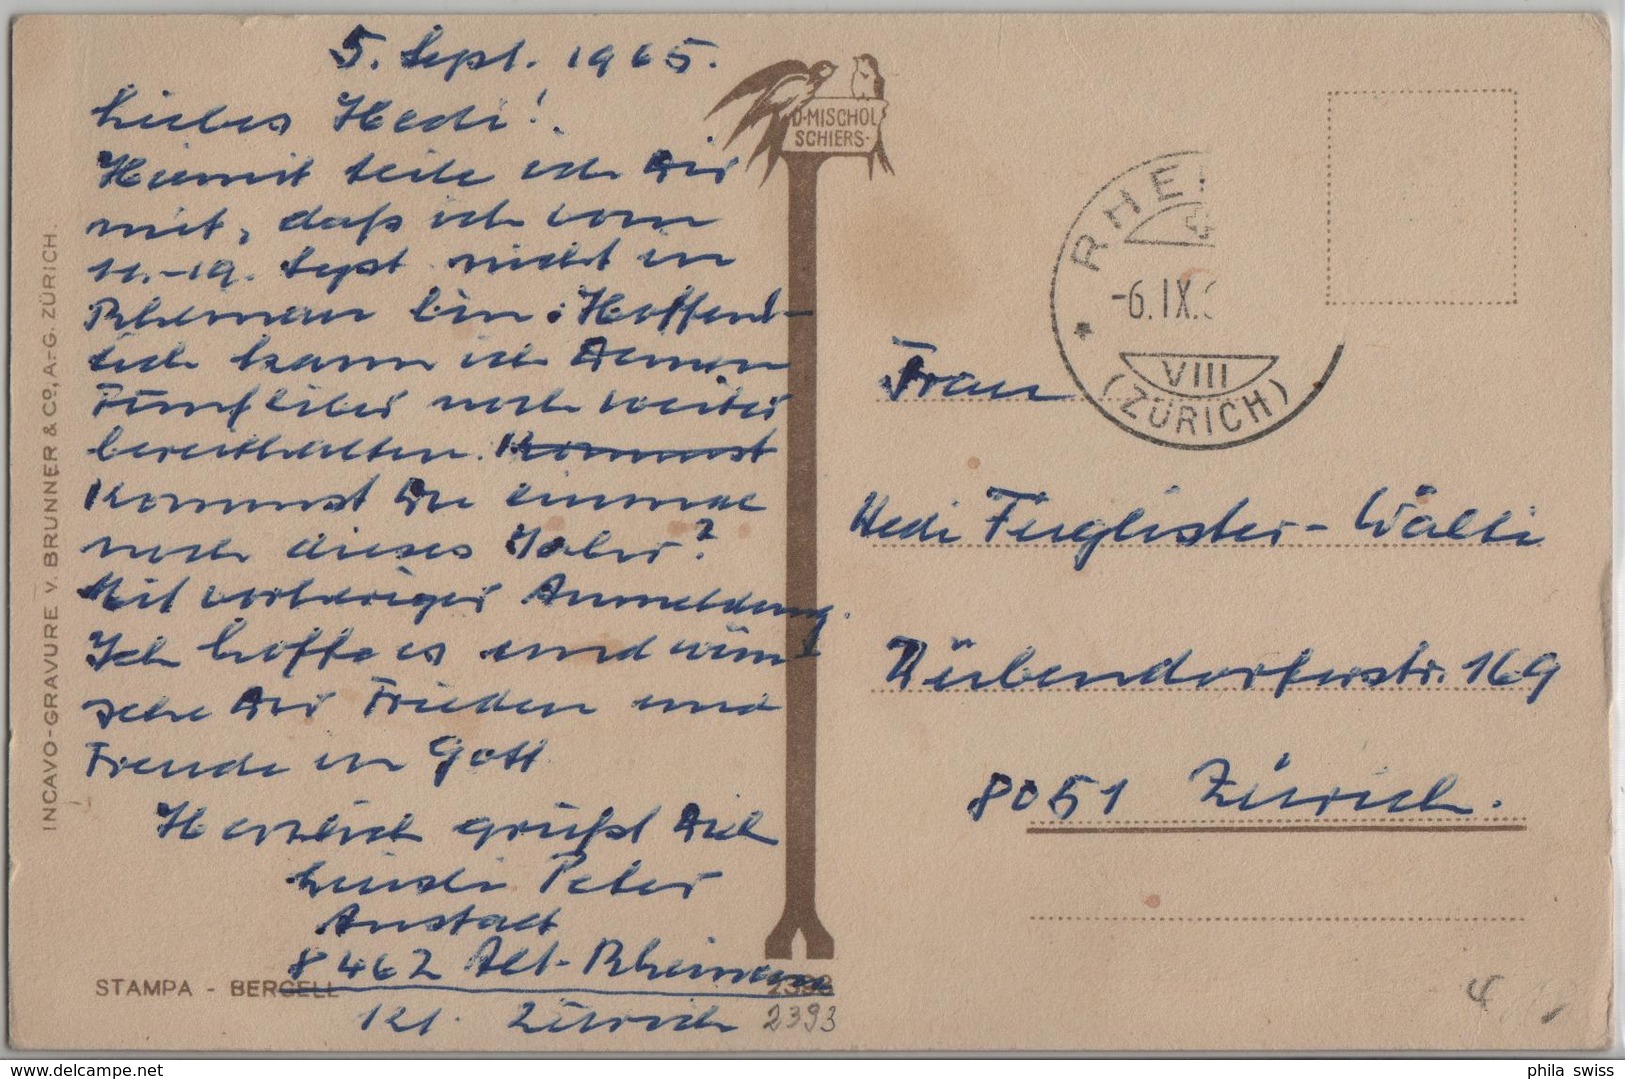 5. Sept. 1965.
Liebes Hedi!
Hiemit teile ich Dir
mit, daß ich vom
11.-19. Sept. nicht in
Rheinau bin. Hoffent-
lich kann ich Deinen
Fünfliber noch weiter
bereithalten. Kommst
Kommst Du einmal
noch dieses Jahr?
Mit vorheriger Anmeldung.
Ich hoffe es und wün-
sche Dir Frieden und
Freude in Gott
Herzlich grüßt Dich
Peter
Anstalt
8462 Alt-Rheinau
Kt. Zürich
D. MISCHOL
SCHIERS
INCAVO-GRAVURE V. BRUNNER & CO., A.-G. ZÜRICH.
STAMPA - BERGELL
2393
2393
RHEI
-6.IX.
VIII
(ZÜRICH)
Frau
Hedi Füglister-Wälti
Dübendorferstr. 169
8051 Zürich.
phila swiss
www.delcampe.net